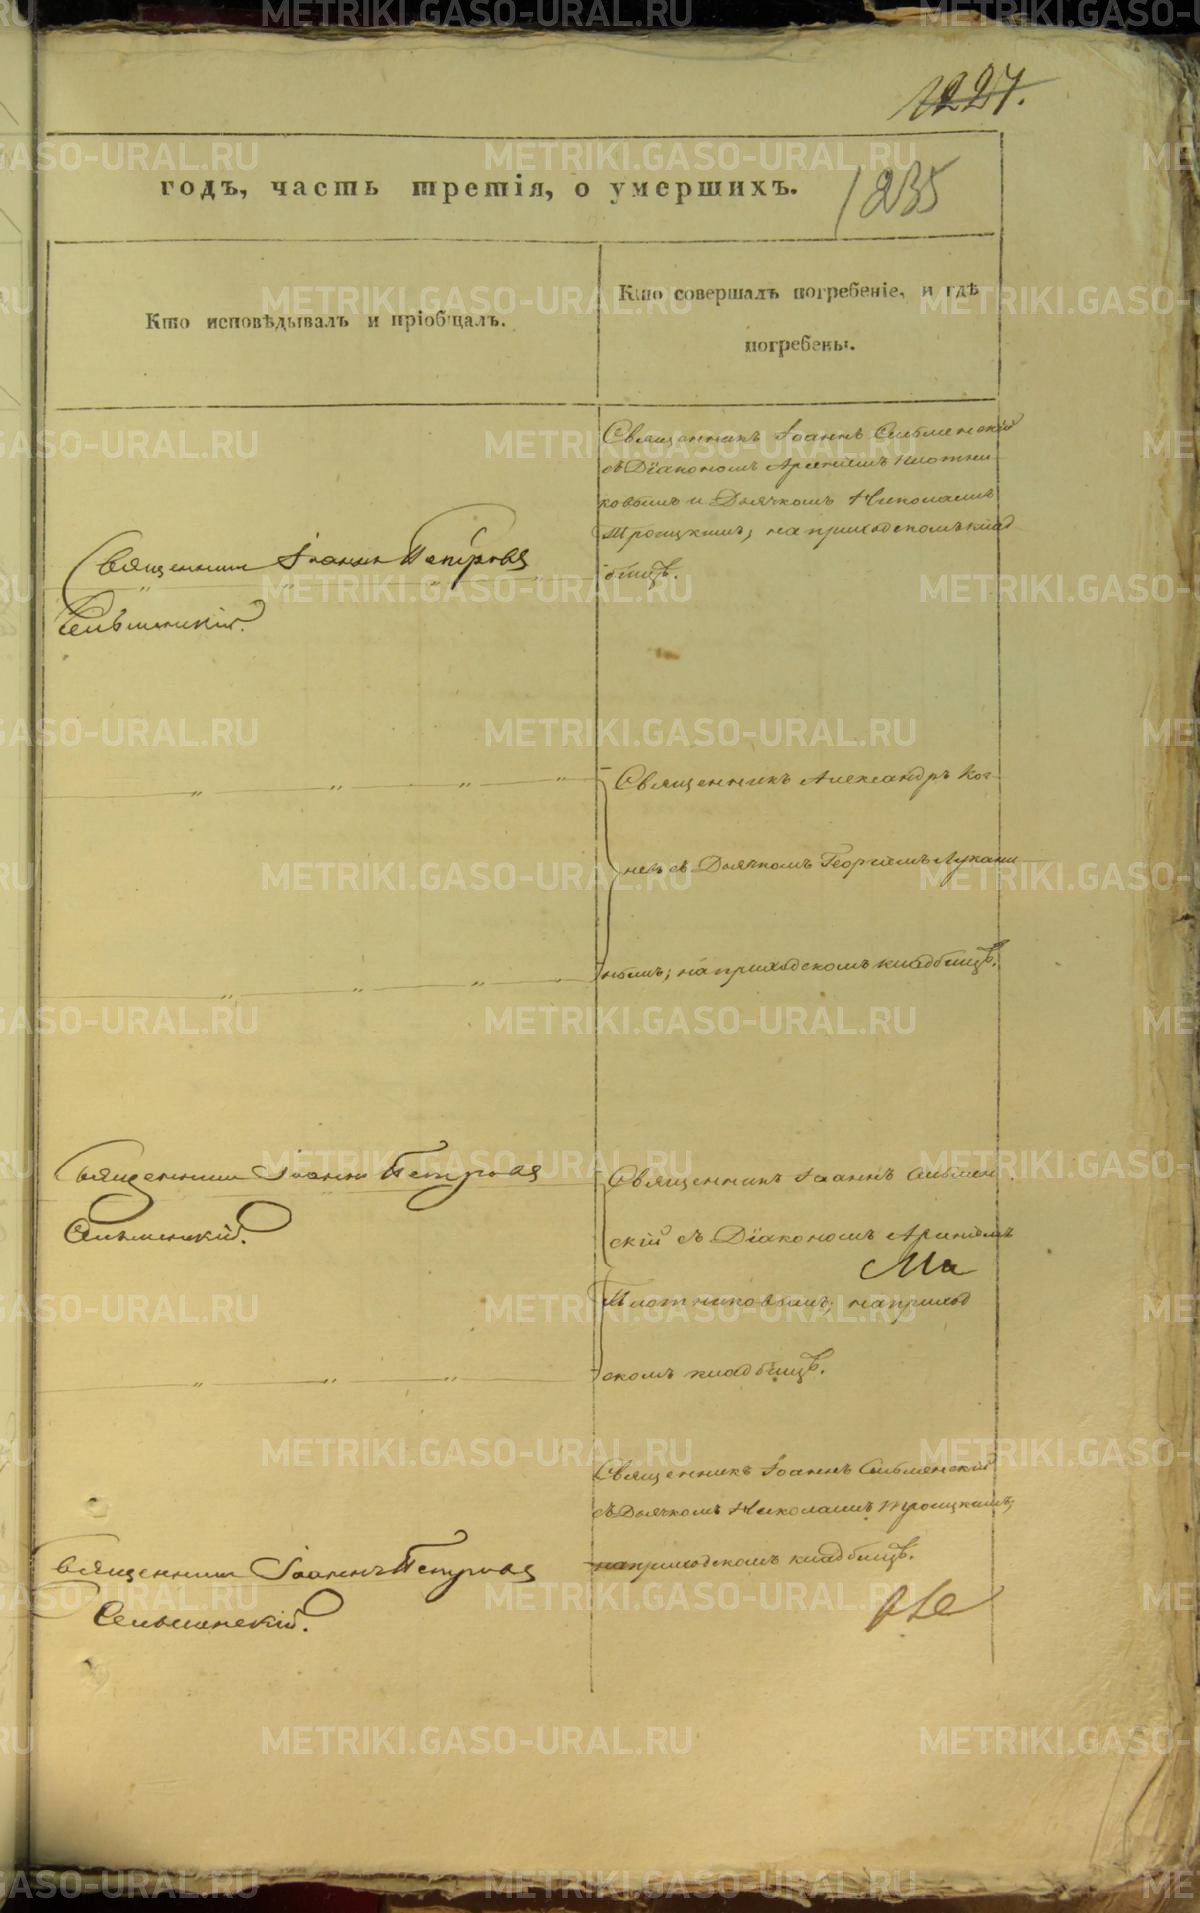 1227.
годъ, часть третія, о умершихъ.
1235
Кто исповѣдывалъ и пріобщалъ.
Кто совершалъ погребеніе, и гдѣ
погребены.
Священникъ Іоаннъ Сельменскій
съ Діакономъ Арсеніемъ Плотни-
ковымъ и Дьячкомъ Николаемъ
Троицкимъ; на приходскомъ клад
бищѣ.
Священник Іоанн Петровъ
Сельменскій.
Священникъ Александръ Ког-
невъ съ Дьячкомъ Георгіемъ Лукани
нымъ; на приходскомъ кладбищѣ.
Священник Іоанн Петровъ
Сельменскій.
Священникъ Іоаннъ Сельмен
скій съ Діакономъ Арсеніемъ
Плотниковымъ; на приход
скомъ кладбищѣ.
Священникъ Іоаннъ Сельменскій
съ Дьячкомъ Николаемъ Троицкимъ;
на приходскомъ кладбищѣ.
Священник Іоаннъ Петровъ
Сельменскій.
METRIKI.GASO-URAL.RU